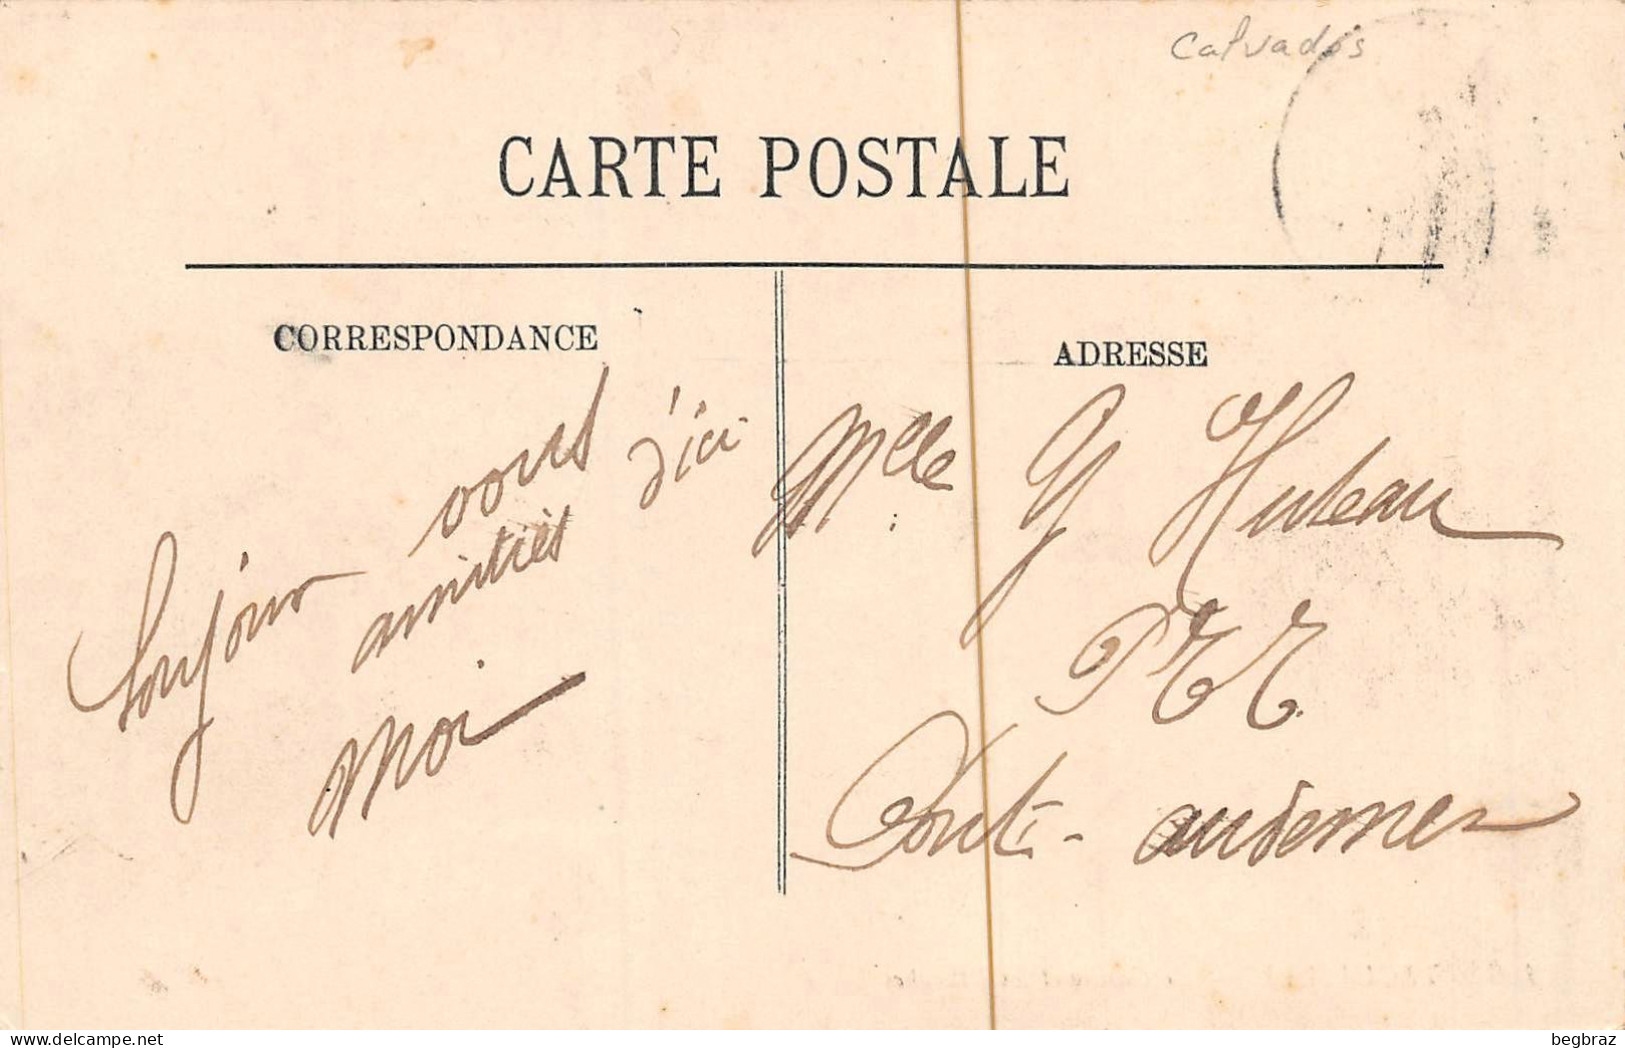 Calvados
CARTE POSTALE
CORRESPONDANCE
Toujours vous
amitiés d'ici
Moi
ADRESSE
Mlle G Huteau
P T T
Pont-audemer
begbraz